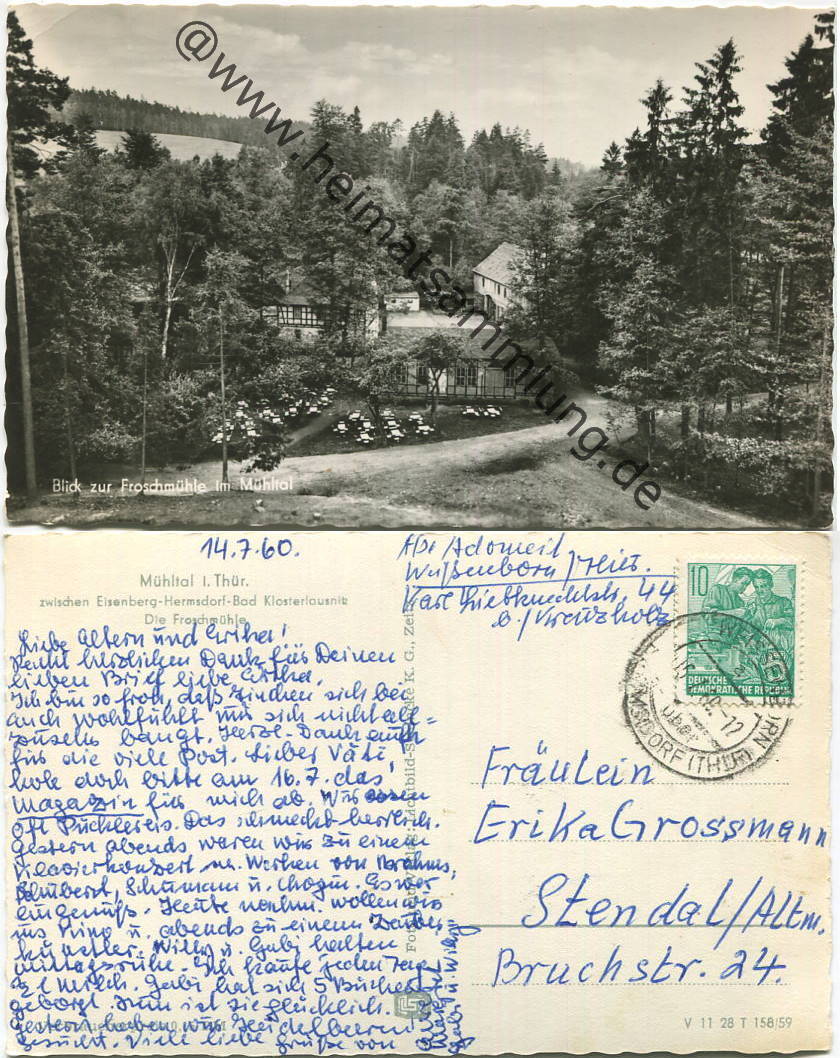 @www.heimatsammlung.de
Blick zur Froschmühle im Mühltal
14.7.60.
Mühltal i. Thür.
zwischen Eisenberg-Hermsdorf-Bad Klosterlausnitz
Die Froschmühle
Abs. Adomeit
Weißenborn
Karl Liebknechtstr. 44
b/ Kreuzholz
Liebe Eltern und Erika!
Recht herzlichen Dank für Deinen
lieben Brief liebe Erika.
Ich bin so froh, daß sich bei
euch wohlfühlt u. sich nicht all=
zusehr bangt. Herzl. Dank auch
für die viele Post. Lieber Vati,
hole doch bitte am 16.7. das
Magazin für mich ab. Wir essen
oft Pücklereis. Das schmeckt herrlich.
Gestern abends waren wir zu einem
Klavierkonzert m. Werken von Brahms,
Schubert, Schumann u. Chopin. Es war
ein Genuß. Heute nachm. wollen wir
ins Kino u. abends zu einem Zauber
künstler. Willy u. Gabi halten
Mittagsruhe. Ich kaufe jeden Tag
Milch. Gabi hat sich 5 Bücher
geborgt. Nun ist sie glücklich.
Gestern haben wir Heidelbeeren
gesucht. Viele liebe Grüße von
Gabi u. Willy
10
DEUTSCHE
DEMOKRATISCHE REPUBLIK
über
HERMSDORF (THÜR)
Fräulein
Erika Grossmann
Stendal/Altm.
Bruchstr. 24.
V 11 28 T 158/59